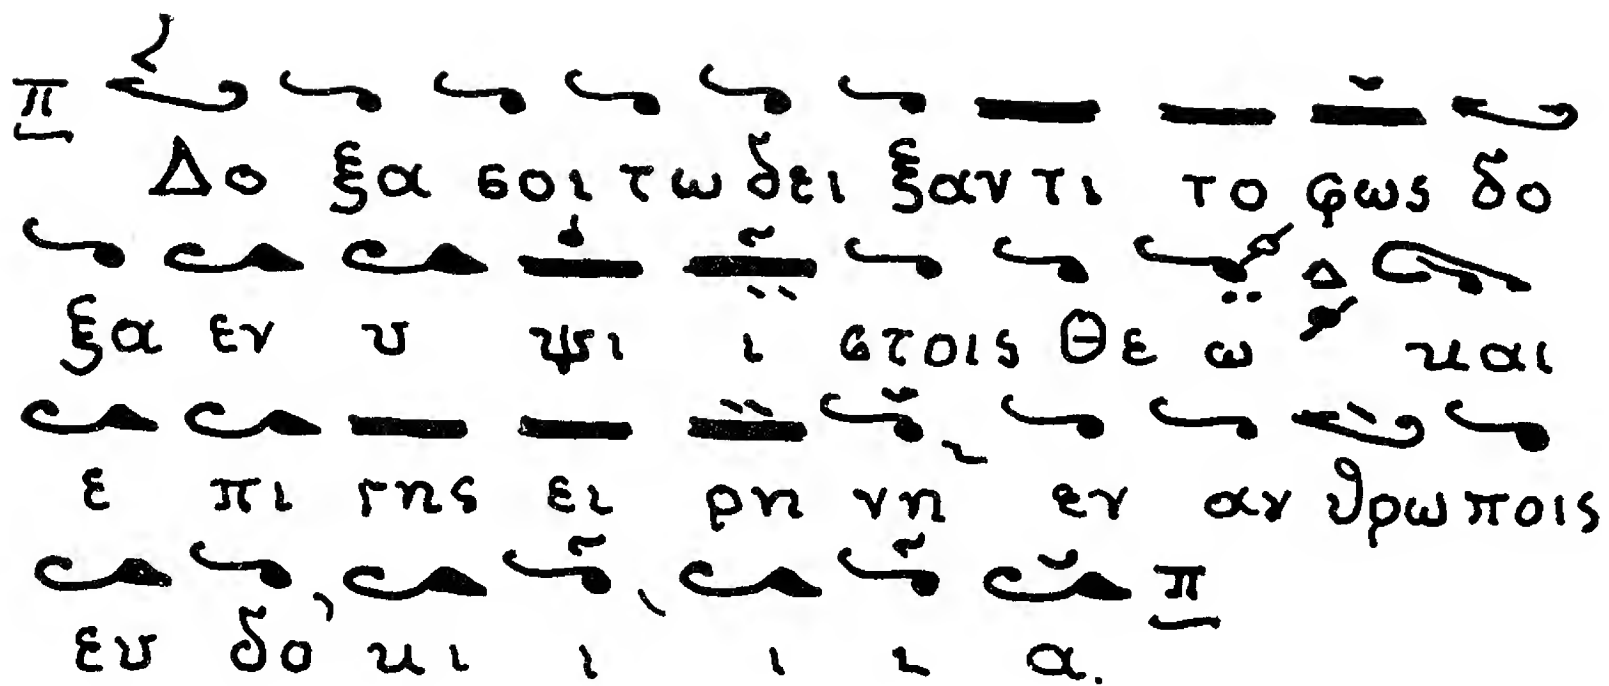 π Δο ξα σοι τω δει ξαν τι το φως δο
ξα εν υ ψι ι στοις Θε ω Δ και
ε πι γης ει ρη νη εν αν θρω ποις
ευ δο κι ι ι ι α. π